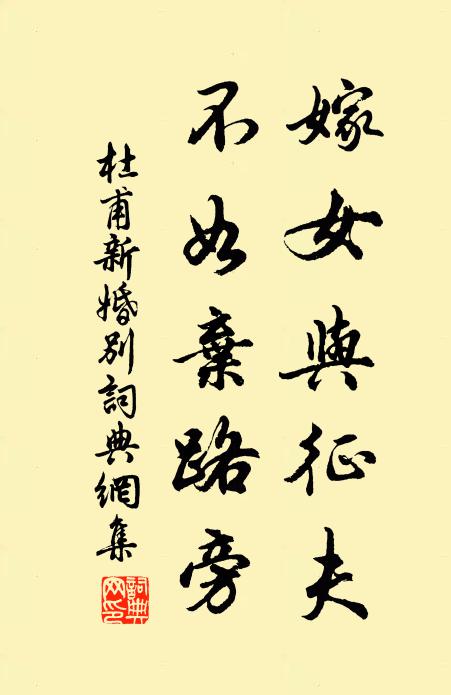 嫁女與征夫
不如棄路旁
杜甫新婚別詞典網集
詞典網印